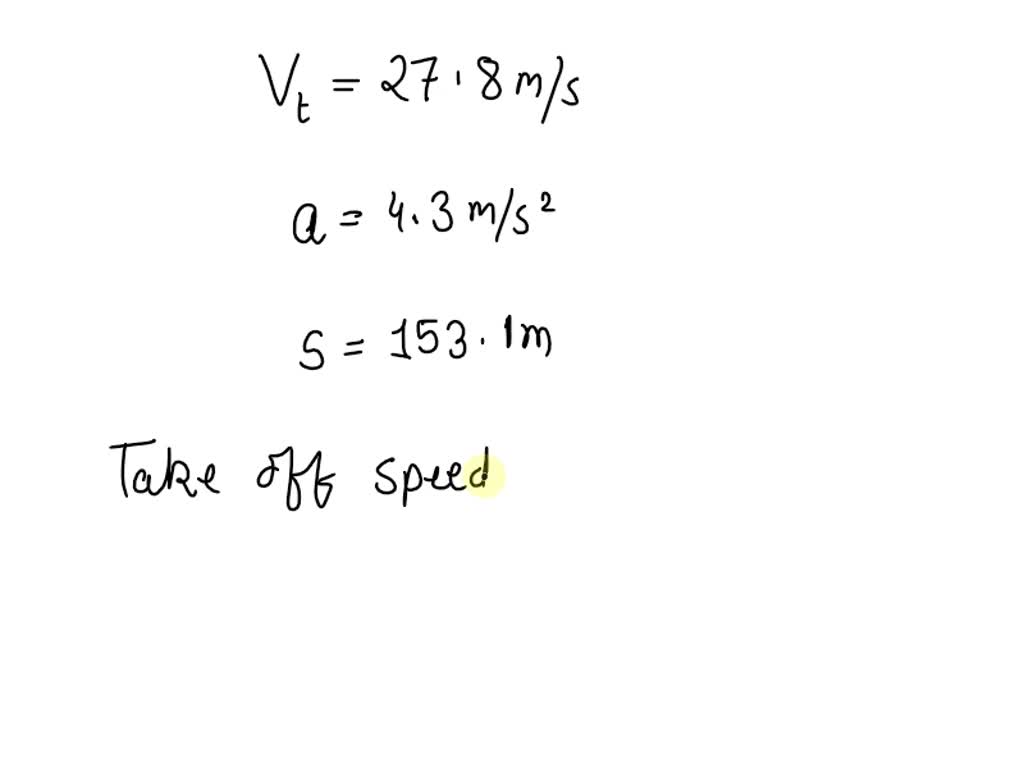 V_t = 27.8 m/s
a = 4.3 m/s²
S = 153.1m
Take off speed